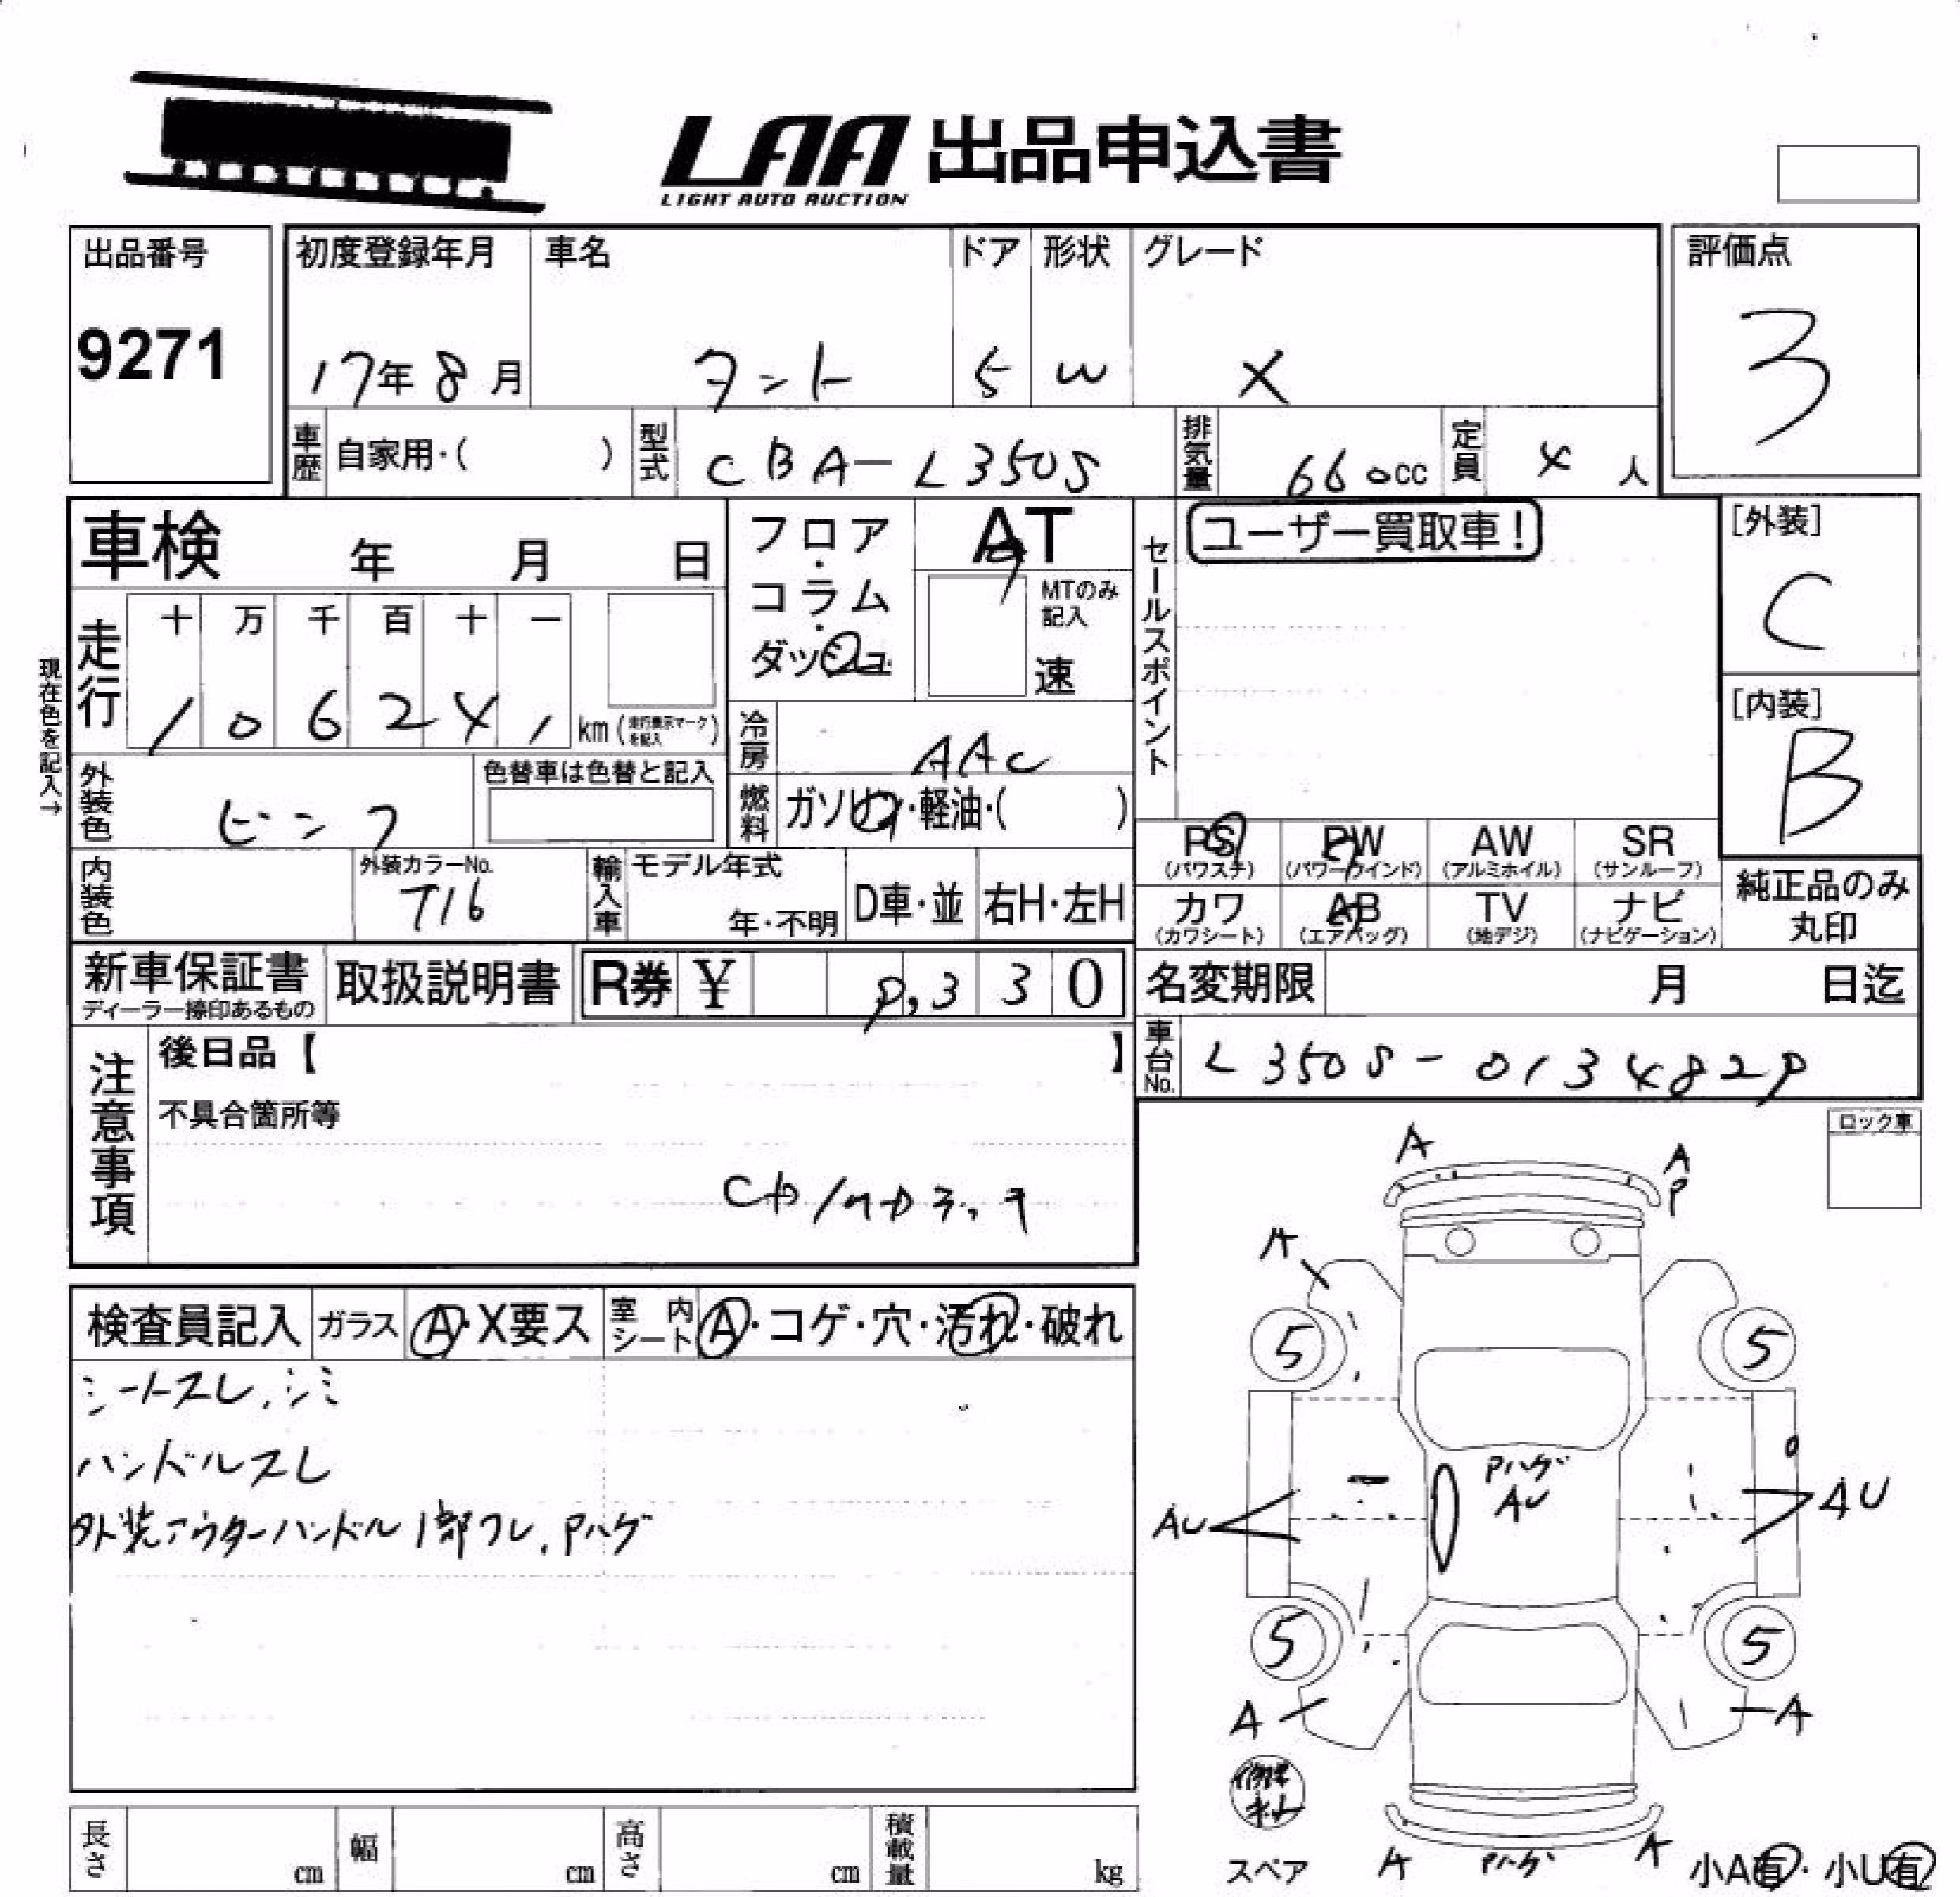 LAA 出品申込書
LIGHT AUTO AUCTION
出品番号
9271
初度登録年月
17年 8月
車名
タント
ドア
5
形状
W
グレード
X
評価点
3
車歴 自家用・( )
型式 CBA-L350S
排気量 660cc
定員 4人
車検 年 月 日
フロア・コラム・ダッシュ
AT
MTのみ記入
速
セールスポイント
ユーザー買取車!
[外装]
C
[内装]
B
現在色を記入→
走行
十 万 千 百 十 一
1 0 6 2 4 1 km (走行表示マークを記入)
冷房 AAC
燃料 ガソリン・軽油・( )
外装色 ピンク
色替車は色替と記入
内装色
外装カラーNo.
T16
輸入車 モデル年式
年・不明
D車・並 右H・左H
PS (パワステ)
PW (パワーウインド)
AW (アルミホイル)
SR (サンルーフ)
カワ (カワシート)
AB (エアバッグ)
TV (地デジ)
ナビ (ナビゲーション)
純正品のみ丸印
新車保証書
ディーラー捺印あるもの
取扱説明書
R券 ¥ 9,330
名変期限 月 日迄
車台No. L350S-0134829
注意事項
後日品【 】
不具合箇所等
ロック車
検査員記入 ガラス A・X要ス 室内シート A・コゲ・穴・汚れ・破れ
シートスレ、シミ
ハンドルスレ
外装アウターハンドル1部ワレ、Pハゲ
A
A
P
A
5 5
Pハゲ
AU
AU
AU
5 5
A
A
スペア
A
Pハゲ
A
小A有・小U有
長さ cm 幅 cm 高さ cm 積載量 kg